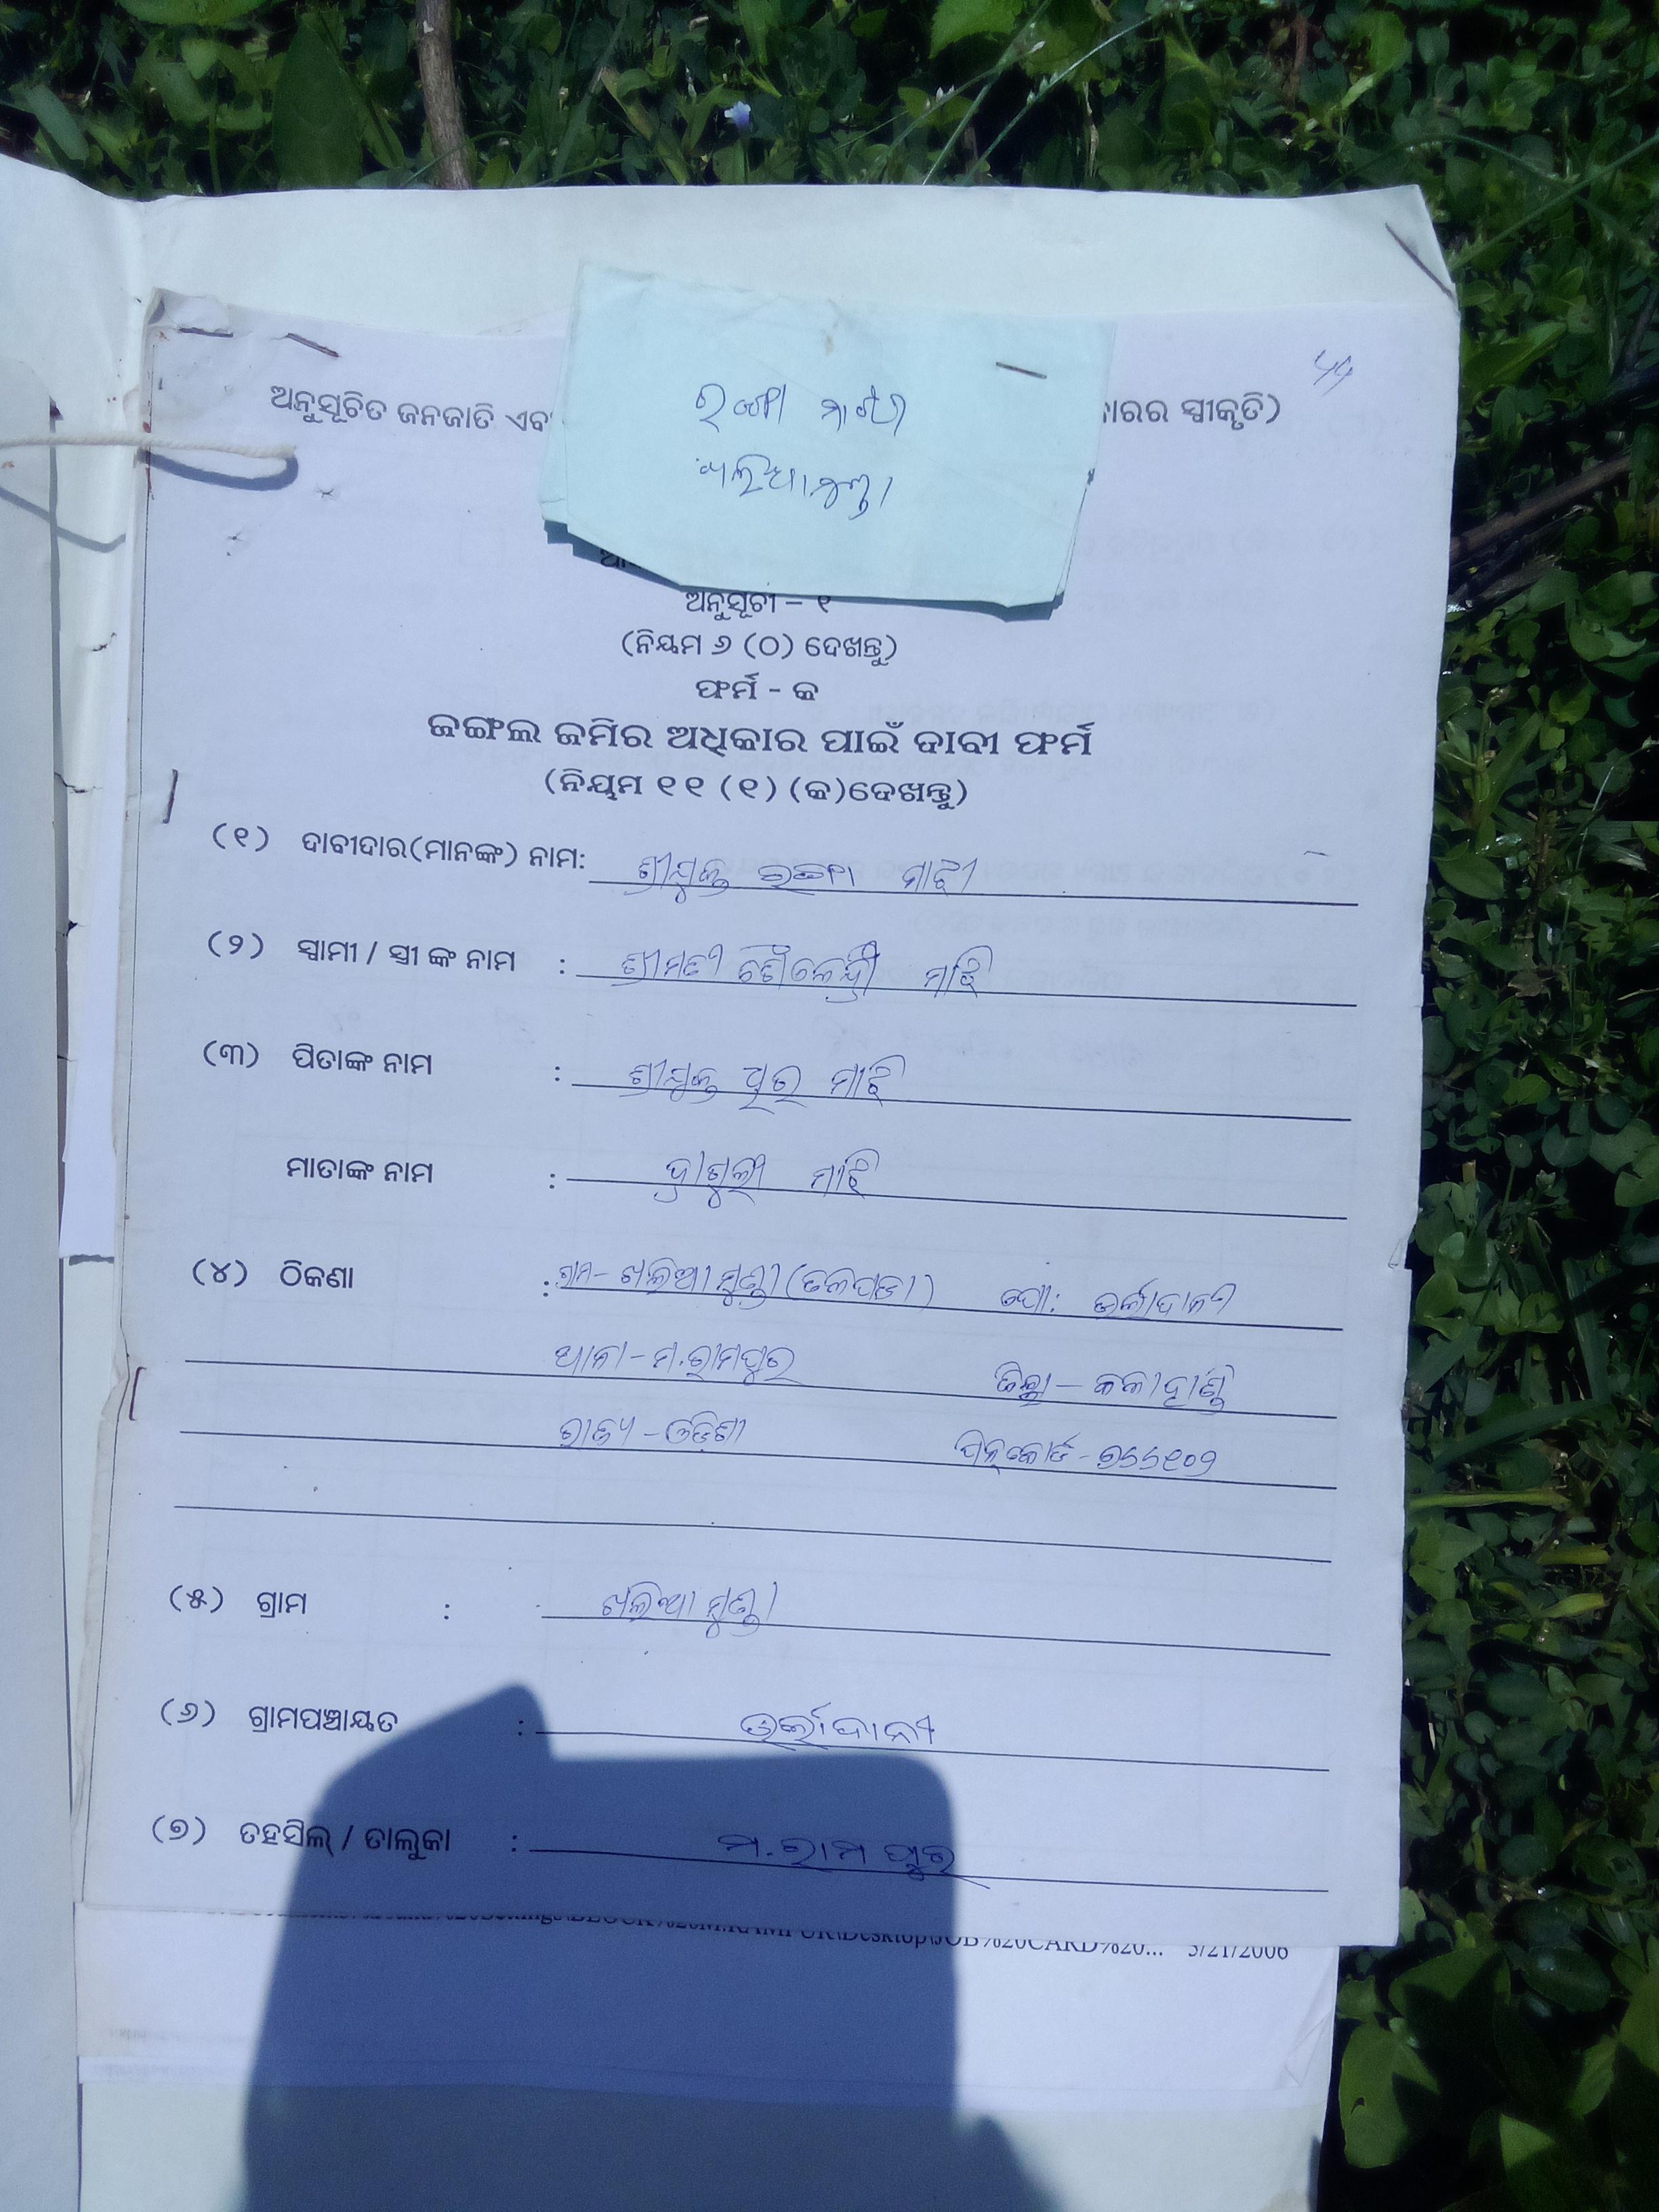 ୪୩
ଅନୁସୂଚିତ ଜନଜାତି ଏବଂ ାରର ସ୍ୱୀକୃତି)
ମାଝୀ
ଖଲିଆମୁଣ୍ଡା
ଅନୁସୂଚୀ – ୧
(ନିୟମ ୬ (ଠ) ଦେଖନ୍ତୁ)
ଫର୍ମ - କ
ଜଙ୍ଗଲ ଜମିର ଅଧିକାର ପାଇଁ ଦାବୀ ଫର୍ମ
(ନିୟମ ୧୧ (୧) (କ)ଦେଖନ୍ତୁ)
(୧) ଦାବୀଦାର(ମାନଙ୍କ) ନାମ: ଶ୍ରୀଯୁକ୍ତ ମାଝୀ
(୨) ସ୍ୱାମୀ / ସ୍ତ୍ରୀ ଙ୍କ ନାମ : ଶ୍ରୀମତୀ ମାଝି
(୩) ପିତାଙ୍କ ନାମ : ଶ୍ରୀଯୁକ୍ତ ମାଝି
ମାତାଙ୍କ ନାମ : ମାଝି
(୪) ଠିକଣା : ଗ୍ରାମ- ଖଲିଆମୁଣ୍ଡା (ତଳପଡା) ପୋ: ଉର୍ଲାଦାନୀ
ଥାନା - ମ.ରାମପୁର ଜିଲ୍ଲା - କଳାହାଣ୍ଡି
ରାଜ୍ୟ - ଓଡିଶା ପିନ୍‌କୋଡ - ୭୬୬୧୦୨
(୫) ଗ୍ରାମ : ଖଲିଆମୁଣ୍ଡା
(୬) ଗ୍ରାମପଞ୍ଚାୟତ : ଉର୍ଲାଦାନୀ
(୭) ତହସିଲ୍ / ତାଲୁକା : ମ.ରାମପୁର
M.RAMPUR\Desktop\JOB%20CARD%20... 5/21/2006